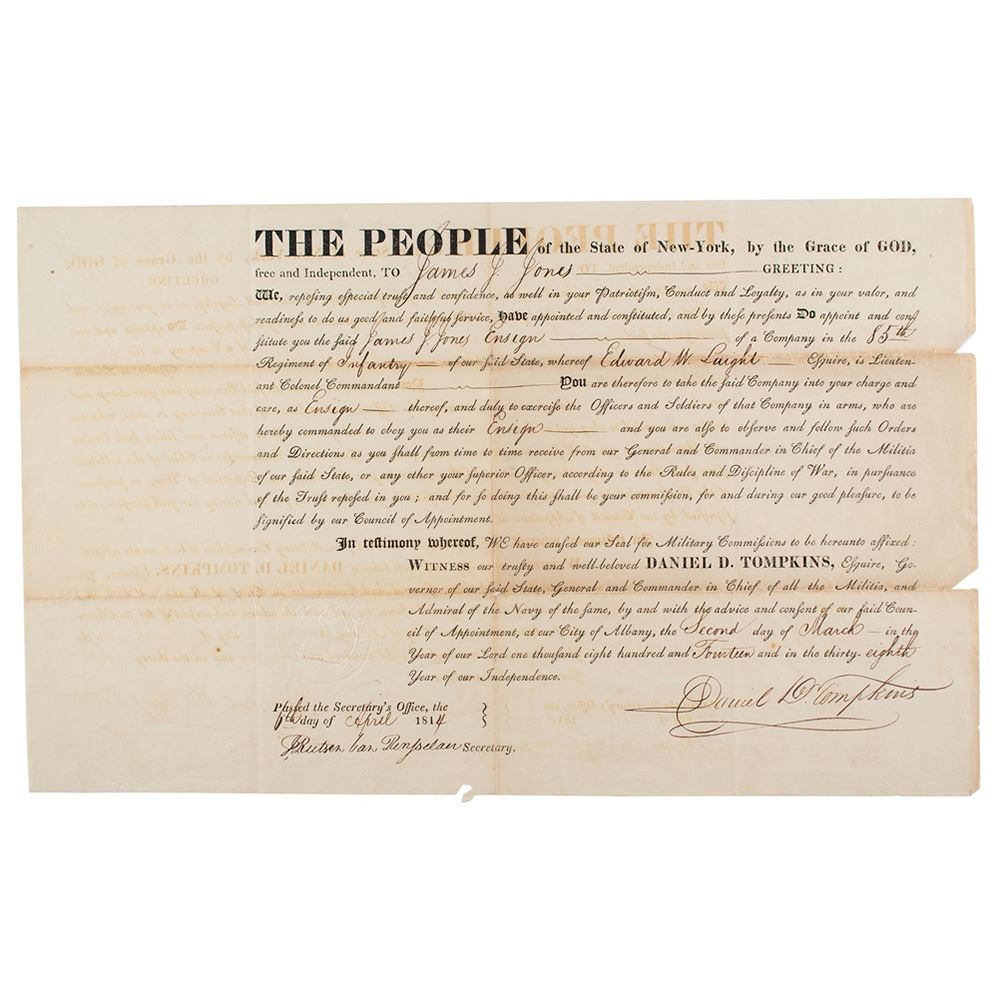 THE PEOPLE of the State of New-York, by the Grace of GOD,
free and Independent, TO James J. Jones GREETING:
We, repoſing eſpecial truſt and confidence, as well in your Patriotiſm, Conduct and Loyalty, as in your valor, and
readineſs to do us good and faithful ſervice, Have appointed and conſtituted, and by theſe preſents Do appoint and conſ
ſtitute you the ſaid James J Jones Ensign of a Company in the 85th
Regiment of Infantry of our ſaid State, whereof Edward W Laight Eſquire, is Lieuten-
ant Colonel Commandant You are therefore to take the ſaid Company into your charge and
care, as Ensign thereof, and duly to exerciſe the Officers and Soldiers of that Company in arms, who are
hereby commanded to obey you as their Ensign and you are alſo to obſerve and follow ſuch Orders
and Directions as you ſhall from time to time receive from our General and Commander in Chief of the Militia
of our ſaid State, or any other your Superior Officer, according to the Rules and Diſcipline of War, in purſuance
of the Truſt repoſed in you; and for ſo doing this ſhall be your commiſſion, for and during our good pleaſure, to be
ſignified by our Council of Appointment.
In teſtimony whereof, WE have cauſed our Seal for Military Commiſſions to be hereunto affixed:
WITNESS our truſty and well-beloved DANIEL D. TOMPKINS, Eſquire, Go-
vernor of our ſaid State, General and Commander in Chief of all the Militia, and
Admiral of the Navy of the ſame, by and with the advice and conſent of our ſaid Coun-
cil of Appointment, at our City of Albany, the Second day of March in the
Year of our Lord one thouſand eight hundred and Fourteen and in the thirty-eighth
Year of our Independence.
Daniel D. Tompkins
Paſſed the Secretary's Office, the
6th day of April 1814
J Rutsen Van Renſselaer Secretary.